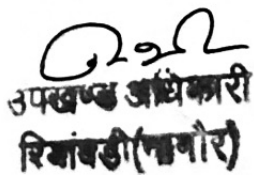 उपखण्ड अधिकारी
रियांबड़ी (नागौर)